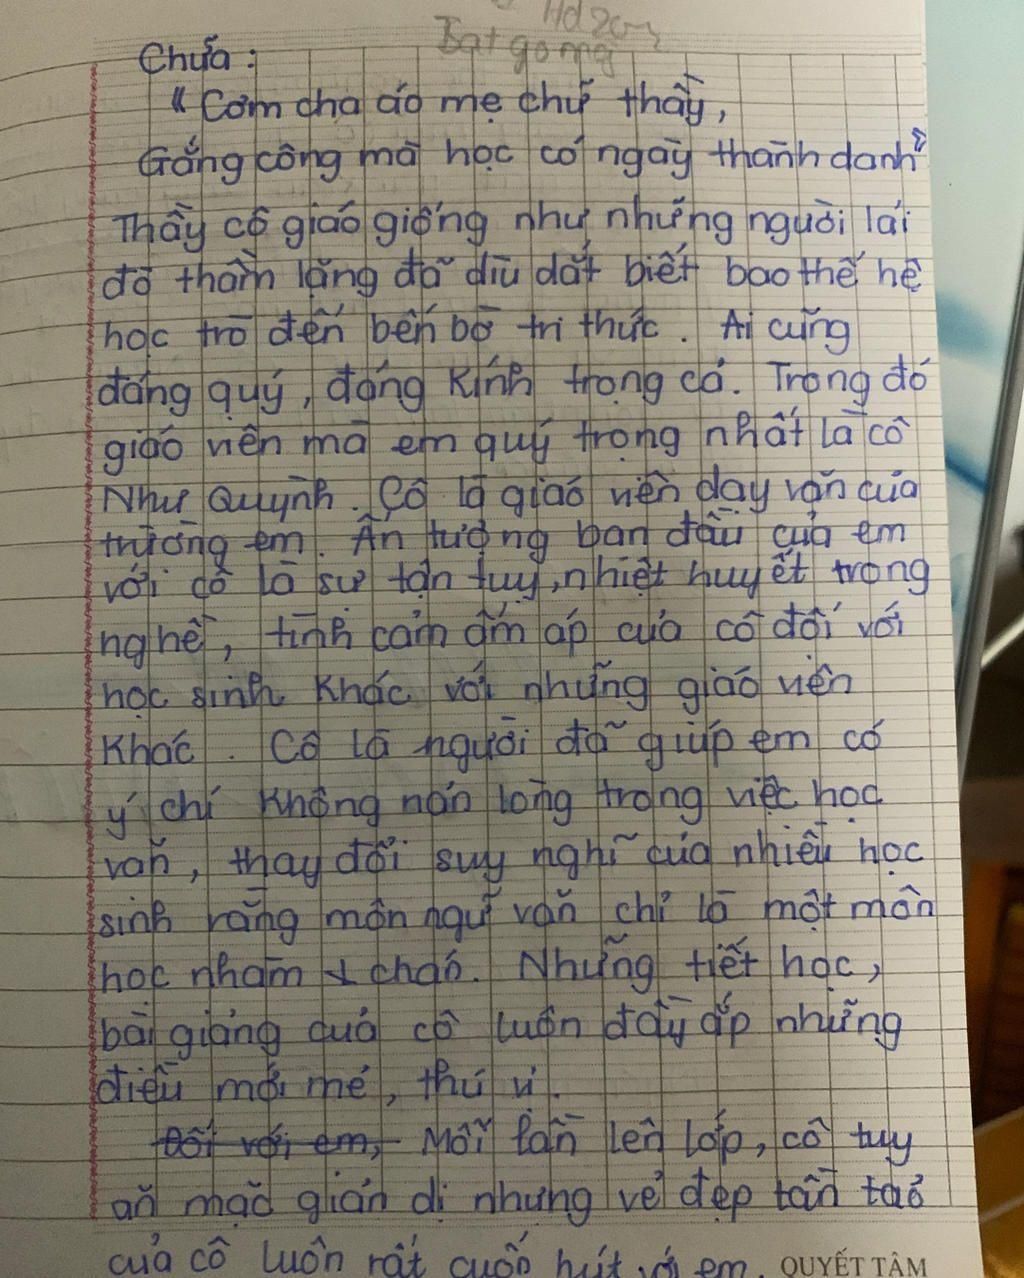 Chứa :
" Cơm cha áo mẹ chữ thầy,
Gắng công mà học có ngày thành danh"
Thầy cô giáo giống như những người lái
đò thầm lặng đã dìu dắt biết bao thế hệ
học trò đến bến bờ tri thức. Ai cũng
đáng quý, đáng kính trọng cả. Trong đó
giáo viên mà em quý trọng nhất là cô
Như Quỳnh. Cô là giáo viên dạy văn của
trường em. Ấn tượng ban đầu của em
với cô là sự tận tụy, nhiệt huyết trong
nghề, tình cảm ấm áp của cô đối với
học sinh khác với những giáo viên
khác. Cô là người đã giúp em có
ý chí không nản lòng trong việc học
văn, thay đổi suy nghĩ của nhiều học
sinh rằng môn ngữ văn chỉ là một môn
học nhàm chán. Những tiết học,
bài giảng quả cô luôn đầy ắp những
điều mới mẻ, thú vị.
Đối với em, Mỗi lần lên lớp, cô tuy
ăn mặc giản dị nhưng vẻ đẹp tần tảo
của cô luôn rất cuốn hút với em. QUYẾT TÂM